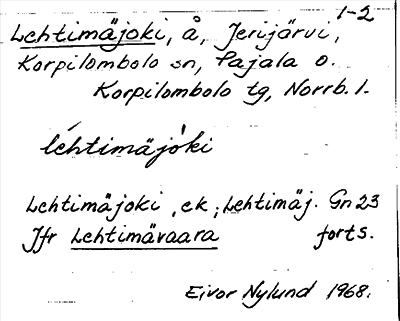 1-2
Lehtimäjoki, å, Jerijärvi,
Korpilombolo sn, Pajala o.
Korpilombolo tg, Norrb. l.
léhtimäjòki
Lehtimäjoki, ek; Lehtimäj. Gn 23
Jfr Lehtimävaara forts.
Eivor Nylund 1968.